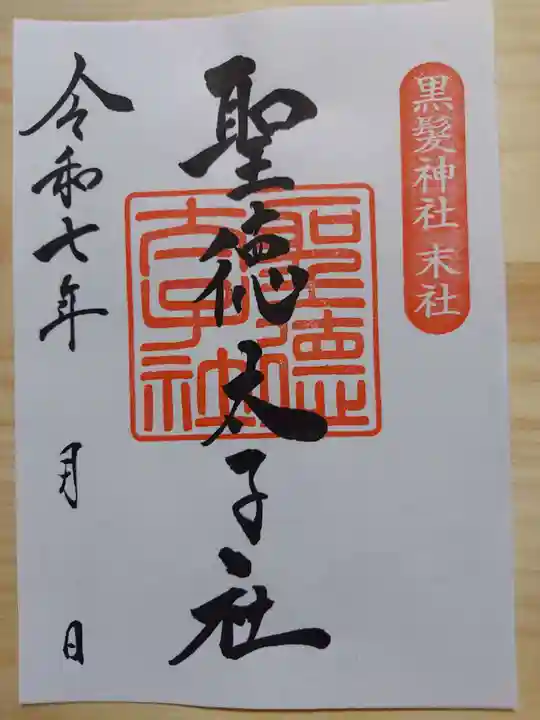 黒髪神社 末社
聖徳太子社
聖徳
太子社
令和七年 月 日